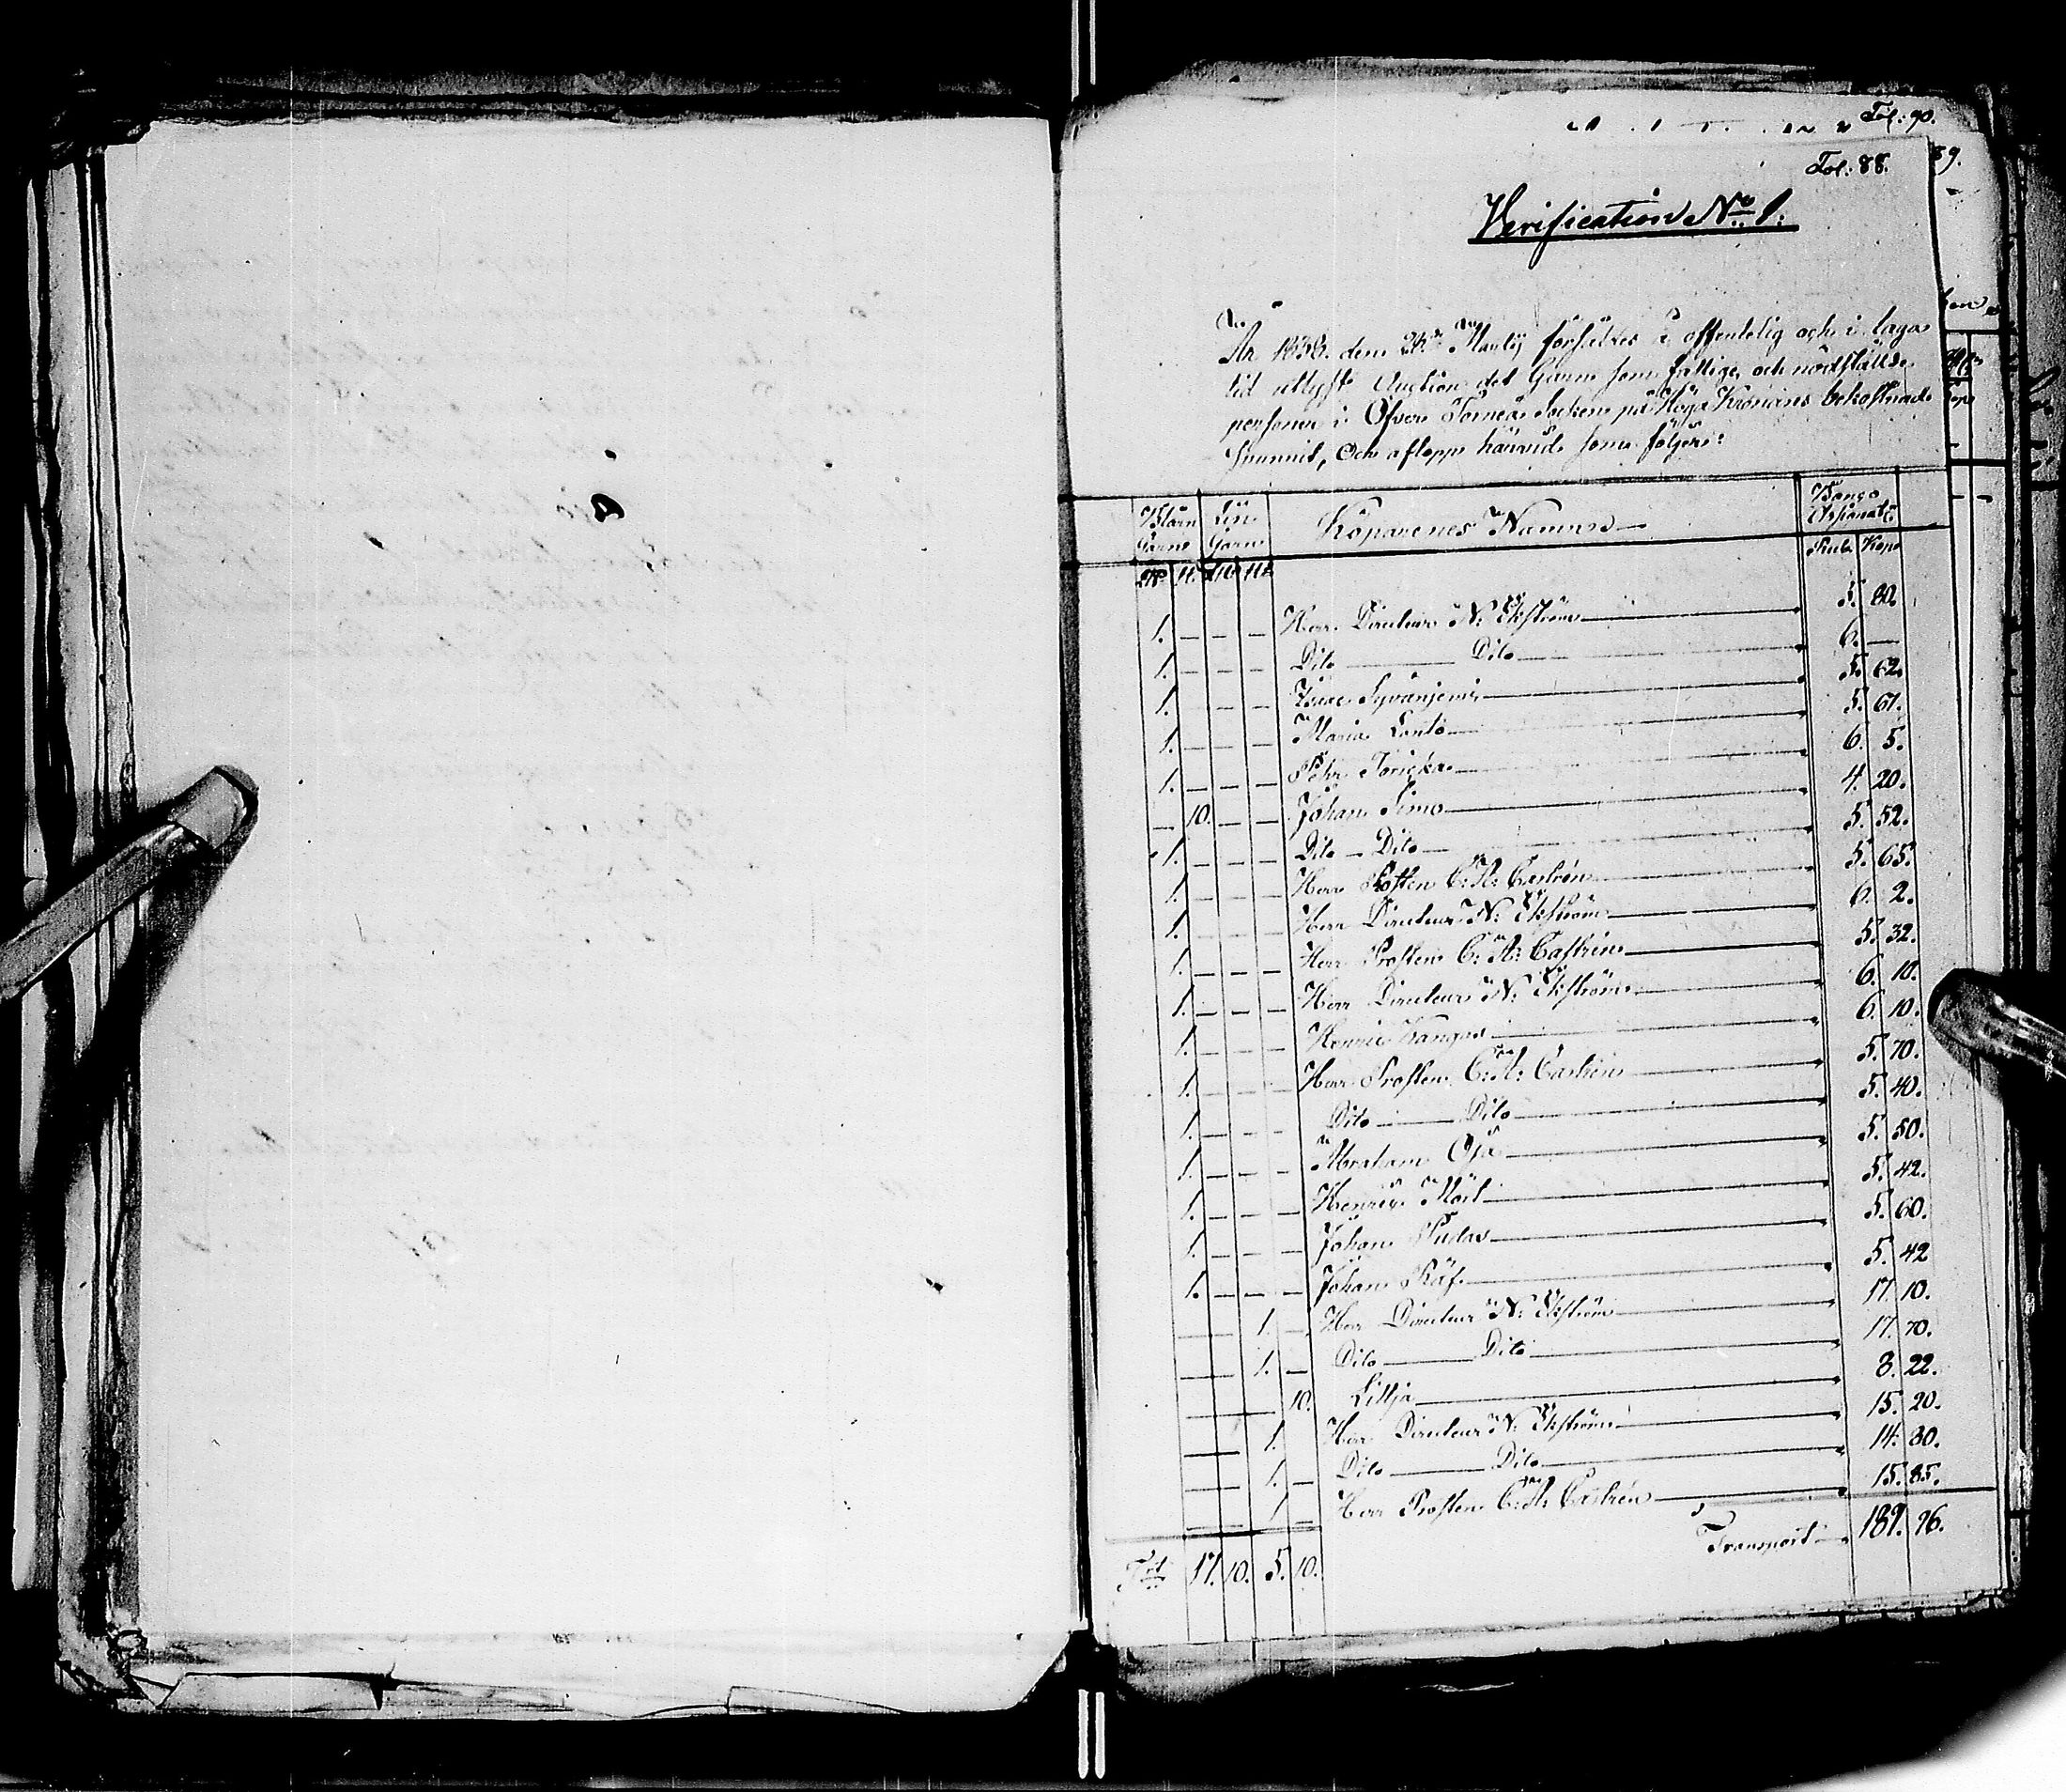 Fol: 90.
89.
Fol: 88.
Verification No 1:
År 1838. den 28de Martij försåldes å offentelig och i laga
tid utlyst Auction det Garn som fattige och nödstälde
personer i Öfver Torneå Socken på Höga Kronans bekostnad
spunnit, och aflopp härvid som följer:
Blårn Garn Lin Garn Köparenes Namn Banco Assignatr
Rub. Kop.
1. — — — Herr Directeur N: Ekström 5. 80.
1. — — — Dito Dito 6. —
1. — — — Isaac Syvänjemi 5. 62.
1. — — — Maria Lanto 5. 67.
1. — — — Pehr Toricka 6. 5.
— 10. — — Johan Simo 4. 20.
1. — — — Dito Dito 5. 52.
1. — — — Herr Prosten C: A: Castrén 5. 65.
1. — — — Herr Directeur N: Ekström 6. 2.
1. — — — Herr Prosten C: A: Castrén 5. 32.
1. — — — Herr Directeur N: Ekström 6. 10.
1. — — — Henric Kangas 6. 10.
1. — — — Herr Prosten C: A: Castrén 5. 70.
1. — — — Dito Dito 5. 40.
1. — — — Abraham Oja 5. 50.
1. — — — Henric 5. 42.
1. — — — Johan Pudas 5. 60.
1. — — — Johan Räf 5. 42
— 1. — Herr Directeur N: Ekström 17. 10.
— 1. — Dito Dito 17. 70.
— 10. Lillja 8. 22.
— 1. Herr Directeur N: Ekström 15. 20.
— 1. — Dito Dito 14. 80.
— 1 — Herr Prosten C: A: Castrén 15. 85.
Transport 189. 96.
Trt 17. 10. 5. 10.